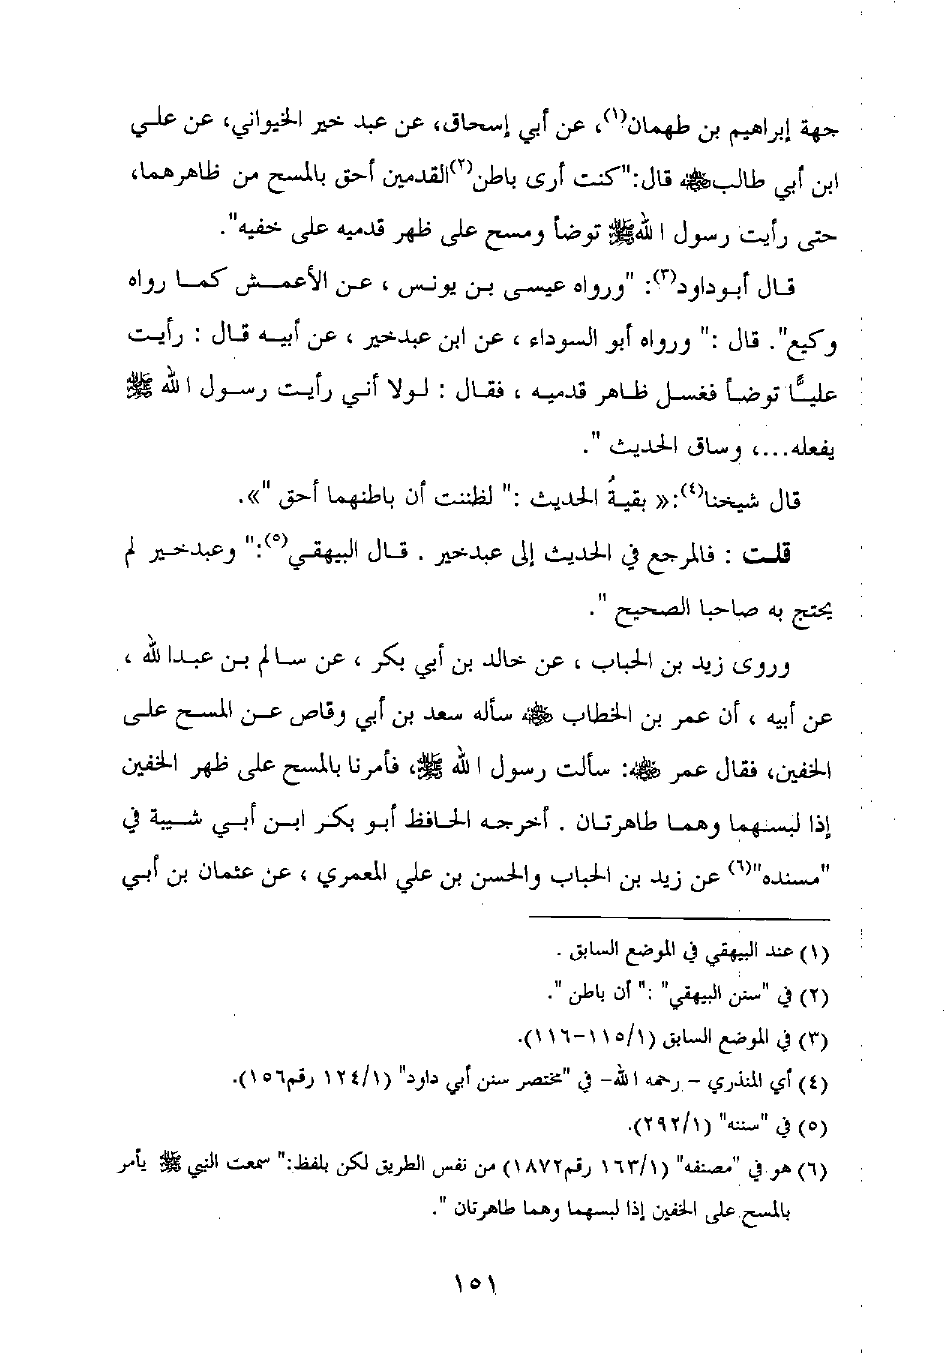 جهة إبراهيم بن طهمان(١)، عن أبي إسحاق، عن عبد خير الخيواني، عن علي
ابن أبي طالب﵁ قال:"كنت أرى باطن(٢)القدمين أحق بالمسح من ظاهرهما،
حتى رأيت رسول الله ﷺ توضأ ومسح على ظهر قدميه على خفيه".
قال أبوداود(٣): "ورواه عيسى بن يونس ، عن الأعمش كما رواه
وكيع". قال :" ورواه أبو السوداء ، عن ابن عبدخير ، عن أبيه قال : رأيت
عليًّا توضأ فغسل ظاهر قدميه ، فقال : لولا أني رأيت رسول الله ﷺ
يفعله...، وساق الحديث ".
قال شيخنا(٤):« بقيةُ الحديث :" لظننت أن باطنهما أحق "».
قلت : فالمرجع في الحديث إلى عبدخير . قال البيهقي(٥):" وعبدخير لم
يحتج به صاحبا الصحيح ".
وروى زيد بن الحباب ، عن خالد بن أبي بكر ، عن سالم بن عبدالله ،
عن أبيه ، أن عمر بن الخطاب ﵁ سأله سعد بن أبي وقاص عن المسح على
الخفين، فقال عمر ﵁: سألت رسول الله ﷺ، فأمرنا بالمسح على ظهر الخفين
إذا لبسهما وهما طاهرتان . أخرجه الحافظ أبو بكر ابن أبي شيبة في
"مسنده"(٦) عن زيد بن الحباب والحسن بن علي المعمري ، عن عثمان بن أبي
(١) عند البيهقي في الموضع السابق .
(٢) في "سنن البيهقي" :" أن باطن ".
(٣) في الموضع السابق (١/ ١١٥-١١٦).
(٤) أي المنذري - رحمه الله- في "مختصر سنن أبي داود" (١/ ١٢٤ رقم١٥٦).
(٥) في "سننه" (١/ ٢٩٢).
(٦) هو في "مصنفه" (١/ ١٦٣ رقم١٨٧٢) من نفس الطريق لكن بلفظ:" سمعت النبي ﷺ يأمر
بالمسح على الخفين إذا لبسهما وهما طاهرتان ".
١٥١